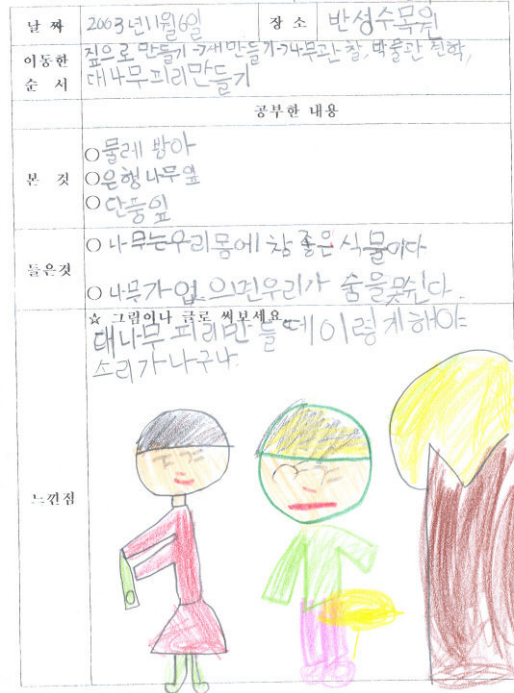 날 짜 2003년11월6일 장 소 반성수목원
이동한 짚으로 만들기→새만들기→나무관찰, 박물관 견학,
순 서 대나무피리만들기
공부한 내용
본 것
○물레 방아
○은행나무잎
○단풍잎
들은것
○ 나무는우리몸에 참 좋은 식물이다
○ 나무가 업으면우리가 숨을못쉰다.
느낀점
☆ 그림이나 글로 써보세요
대나무 피리만들때이렇게해야
소리가나구나.